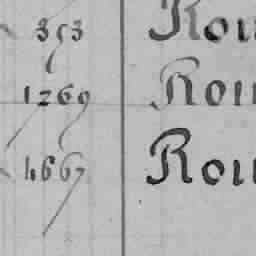 353 Rou
1269 Rou
4667 Rou